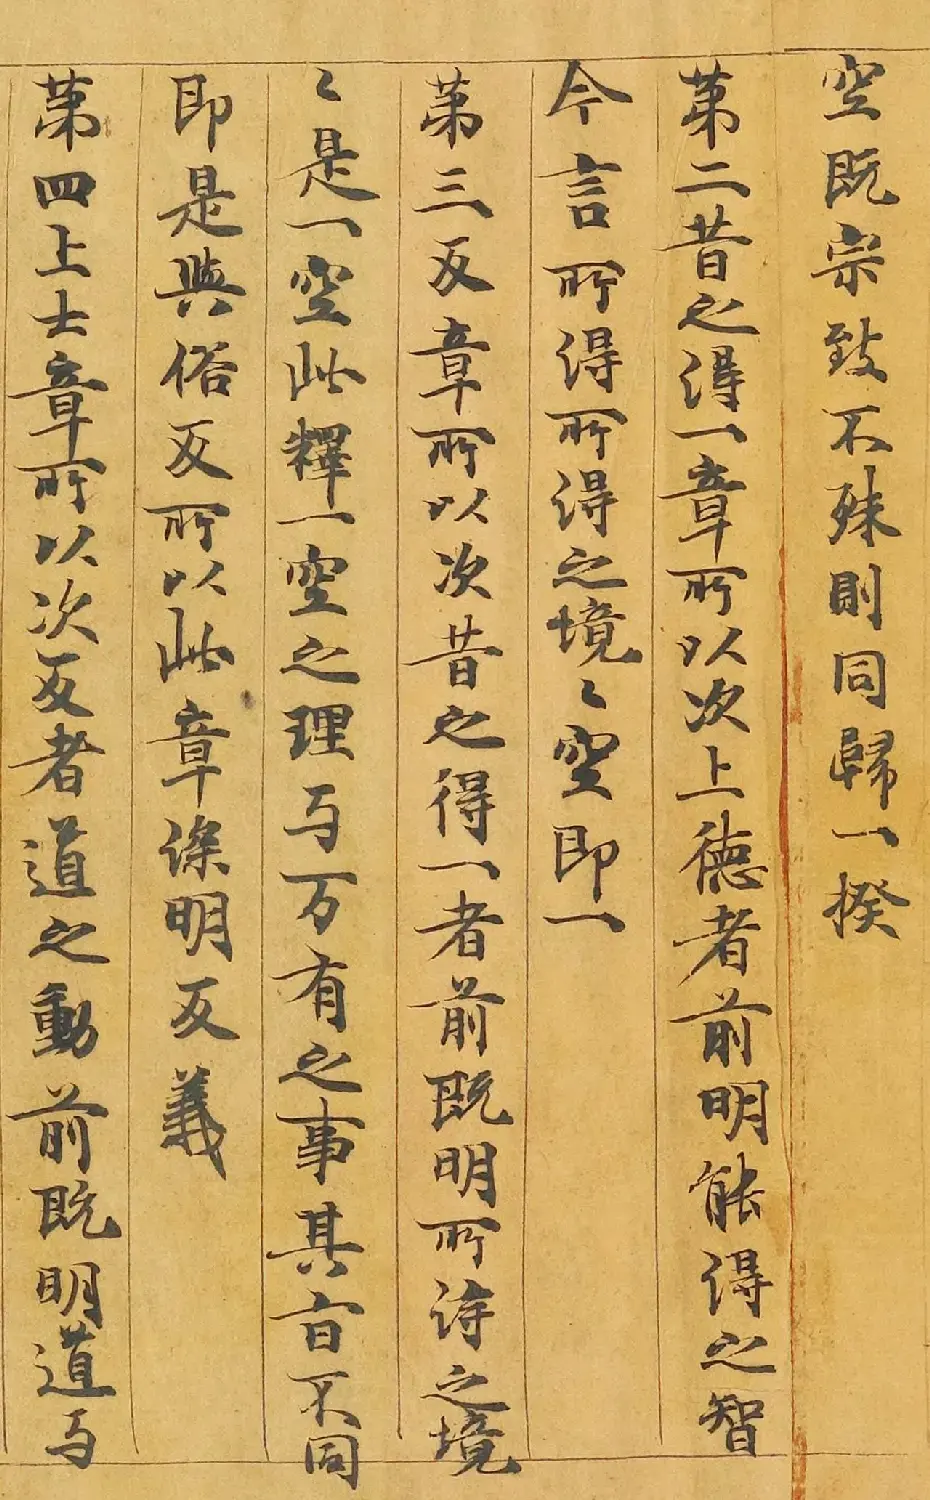 空既宗致不殊則同歸一揆
第二昔之得一章所以次上德者前明能得之智
今言所得所得之境〻空即一
第三反章所以次昔之得一者前既明所得之境
〻是一空此釋一空之理与万有之事其旨不同
即是與俗反所以此章深明反義
第四上士章所以次反者道之動前既明道与